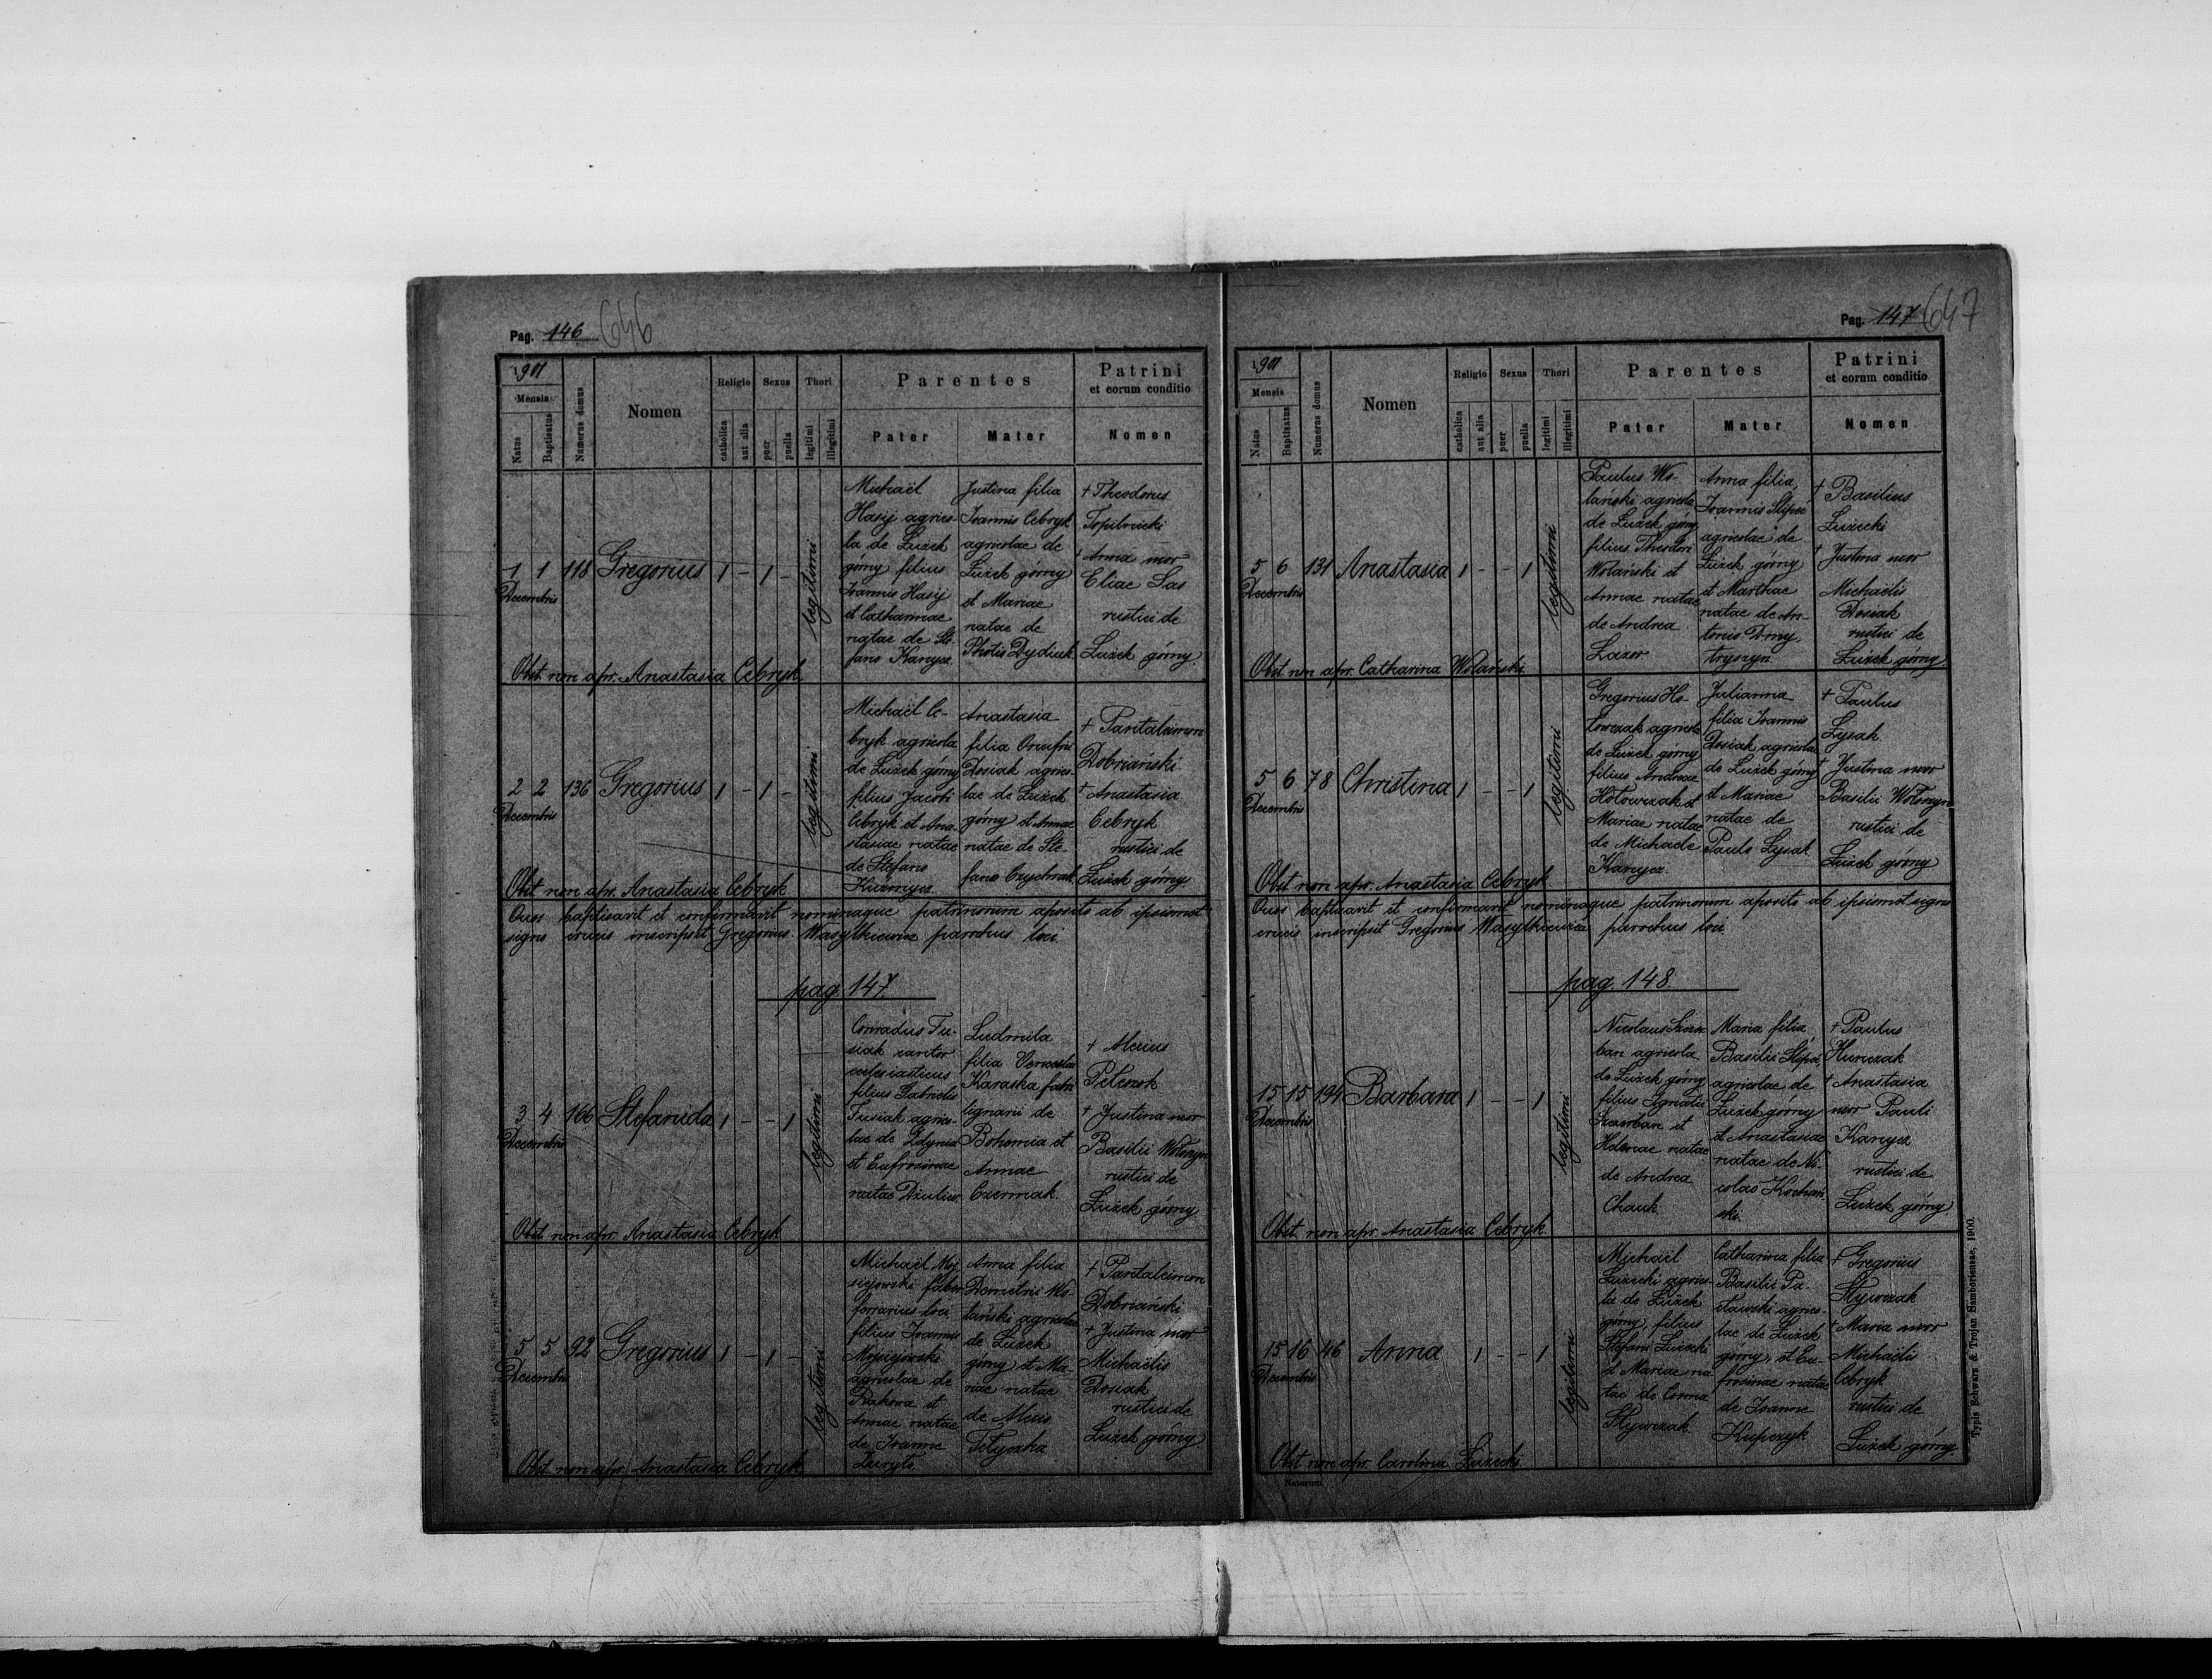 Pag. 146 646
1901
Mensis
Natus
Baptisatus
Numerus domus
Nomen
Religio
catholica
aut alia
Sexus
puer
puella
Thori
legitimi
illegitimi
Parentes
Pater
Mater
Patrini
et eorum conditio
Nomen
1 1 118 Gregorius 1 - 1 - legitimi
Decembris
Michaël
Hasij agrico-
la de Łużek
górny filius
Joannis Hasij
et Catharinae
natae de Ste-
fano Kanycz
Justina filia
Joannis Cebryk
agricolae de
Łużek górny
et Mariae
natae de
Photio Dydiuk
+ Theodorus
Topilnicki
+ Anna uxor
Eliae Sas
rustici de
Łużek górny
Obst. non apr. Anastasia Cebryk
2 2 136 Gregorius 1 - 1 - legitimi
Decembris
Michaël Ce-
bryk agricola
de Łużek górny
filius Jacobi
Cebryk et Ana-
stasiae natae
de Stefano
Kuźmycz
Anastasia
filia Onufrii
Dosiak agrico-
lae de Łużek
górny et Annae
natae de Ste-
fano
+ Pantaleimon
Dobriański
+ Anastasia
Cebryk
rustici de
Łużek górny
Obst. non apr. Anastasia Cebryk
Quos baptisavit et confirmavit nominaque patrinorum aposito ab ipsismet
signo crucis inscripsit Gregorius Wasylkiewicz parochus loci
pag. 147.
3 4 166 Stefanida 1 - - 1 legitimi
Decembris
Conradus Fu-
siak cantor
ecclesiasticus
filius Gabrielis
Fusiak agrico-
lae de Zdynia
et Eufrosinae
natae
Ludmila
filia
Karaska fabri
lignarii de
Bohemia et
Annae
Czermak.
+ Alexius
Petenok
+ Justina uxor
Basilii Wołoszyn
rustici de
Łużek górny
Obst. non apr. Anastasia Cebryk
5 5 92 Gregorius 1 - 1 - legitimi
Decembris
Michaël Moj-
siejowski faber
ferrarius loci
filius Joannis
Mojsiejowski
agricolae de
Rakowa et
Annae natae
de Joanne
Anna filia
Demetrii Wo-
lański agricolae
de Łużek
górny et Ma-
riae natae
de Alexio
Tetyczka
+ Pantaleimon
Dobriański
+ Justina uxor
Michaëlis
Dosiak
rustici de
Łużek górny
Obst. non apr. Anastasia Cebryk
Pag. 147 647
1901
Mensis
Natus
Baptisatus
Numerus domus
Nomen
Religio
catholica
aut alia
Sexus
puer
puella
Thori
legitimi
illegitimi
Parentes
Pater
Mater
Patrini
et eorum conditio
Nomen
5 6 131 Anastasia 1 - - 1 legitimi
Decembris
Paulus Wo-
lański agricola
de Łużek górny
filius Theodori
Wolański et
Annae natae
de Andrea
Łazor
Anna filia
Joannis Slipec
agricolae de
Łużek górny
et Marthae
natae de An-
tonio Dmy-
tryszyn
+ Basilius
Łużecki
+ Justina uxor
Michaëlis
Dosiak
rustici de
Łużek górny
Obst. non apr. Catharina Wolański.
5 6 78 Christina 1 - - 1 legitimi
Decembris
Gregorius Ho-
łowczak agricola
de Łużek górny
filius Andreae
Hołowczak et
Mariae natae
de Michaele
Kanycz.
Julianna
filia Joannis
Dosiak agricolae
de Łużek górny
et Mariae
natae de
Paulo Lysak
+ Paulus
Lysak
+ Justina uxor
Basilii Wołoszyn
rustici de
Łużek górny
Obst. non apr. Anastasia Cebryk
Quos baptisavit et confirmavit nominaque patrinorum aposito ab ipsismet signo
crucis inscripsit Gregorius Wasylkiewicz parochus loci
pag. 148.
15 15 194 Barbara 1 - - 1 legitimi
Decembris
Nicolaus Szczer-
ban agricola
de Łużek górny
filius Ignatii
Szczerban et
Helenae natae
de Andrea
Chauk.
Maria filia
Basilii Slipec,
agricolae de
Łużek górny
et Anastasiae
natae de Ni-
colao Kochań-
ski.
+ Paulus
Hunczak
+ Anastasia
uxor Pauli
Kanycz
rustici de
Łużek górny
Obst. non apr. Anastasia Cebryk.
15 16 46 Anna 1 - - 1 legitimi
Decembris
Michaël
Łużecki agrico-
la de Łużek
górny, filius
Stefani Łużecki
et Mariae na-
tae de Cosma
Stywczak
Catharina filia
Basilii Pa-
sławski agrico-
lae de Łużek
górny, et Eu-
frosinae natae
de Joanne
Kupczyk
+ Gregorius
Stywczak
+ Maria uxor
Michaëlis
Cebryk
rustici de
Łużek górny.
Obst. non apr. Carolina Łużecki.
Natorum
Typis Schwarz & Trojan Samboriensae, 1900.